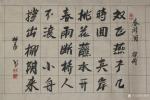 春游湖 徐俯
双飞燕子几
時回夾岸
桃花蘸水开
春雨断橋人
不渡小舟
撑出柳阴来